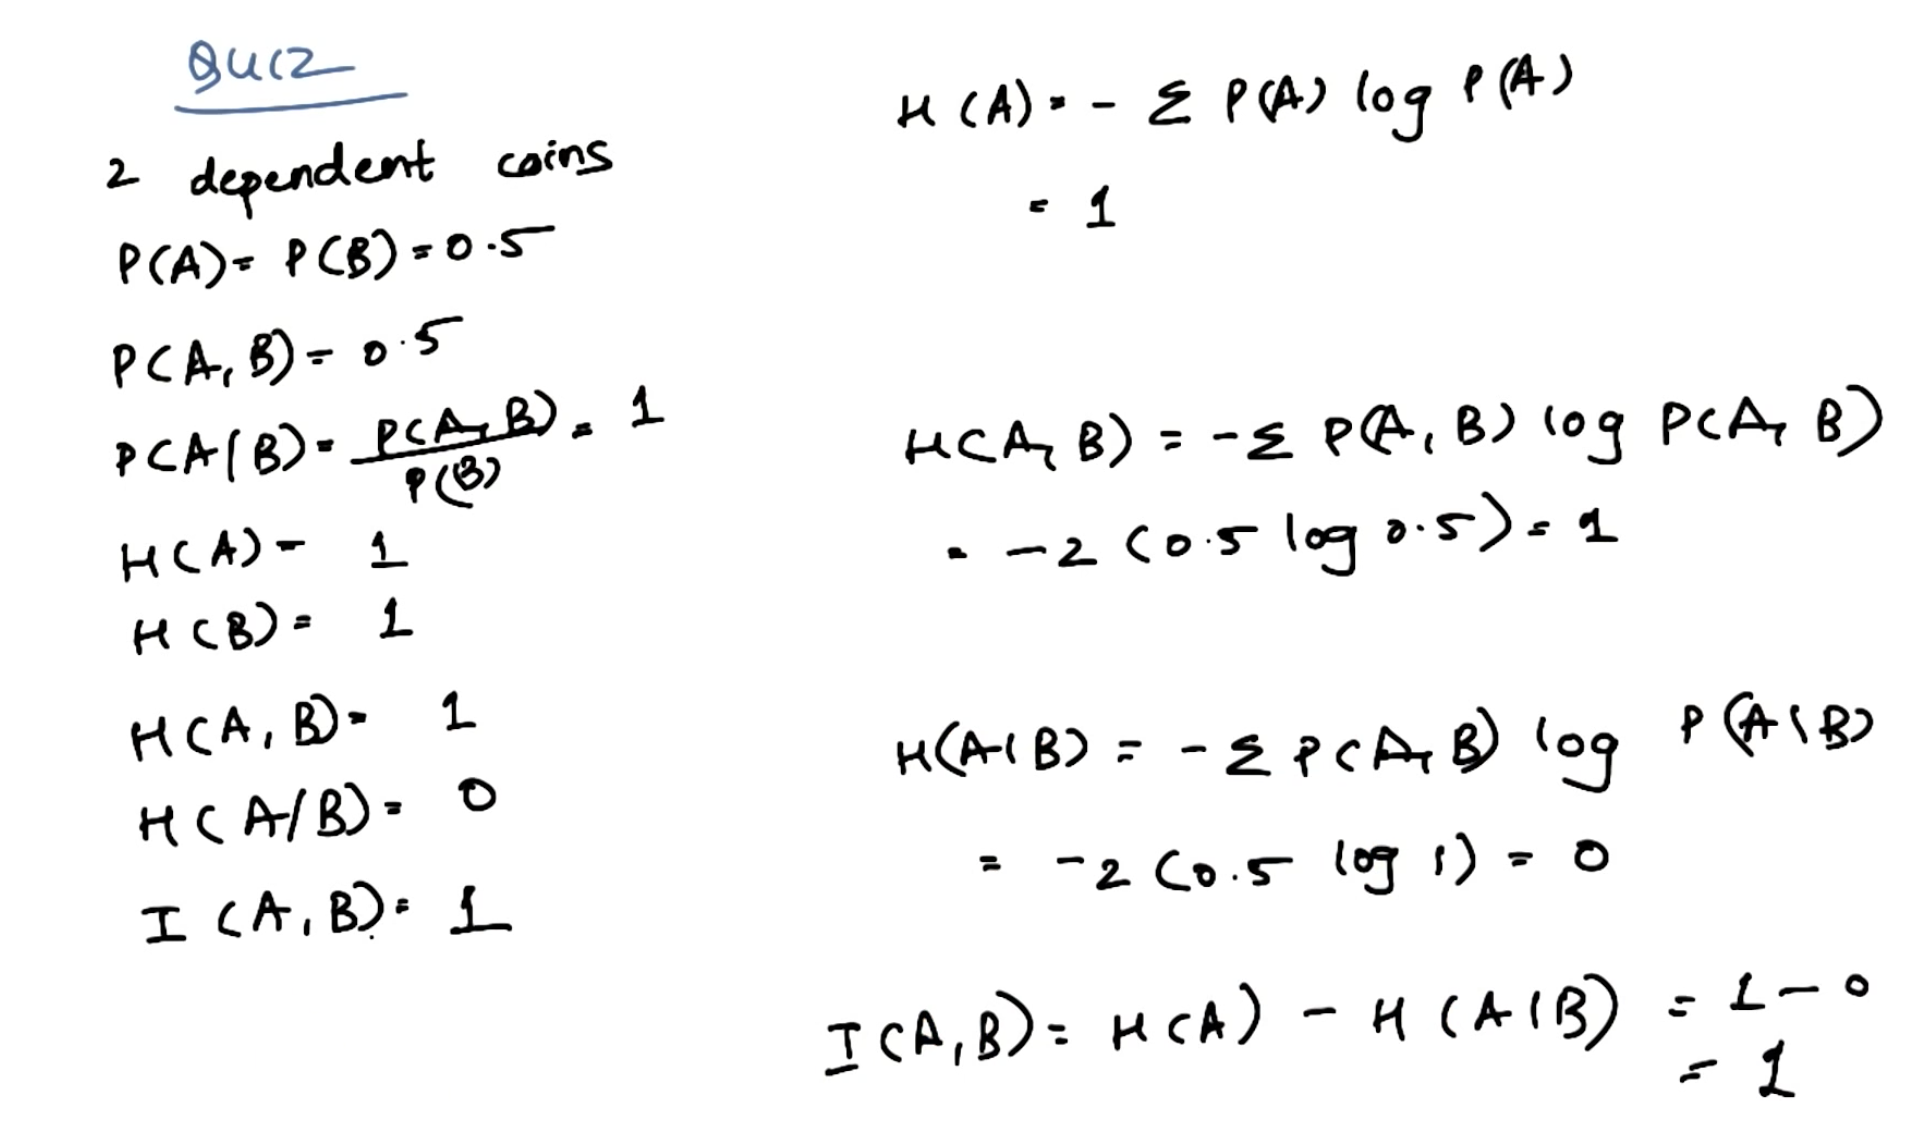 Quiz
2 dependent coins
P(A)= P(B)=0.5
P(A,B)= 0.5
P(A|B)= P(A,B)/P(B) = 1
H(A)= 1
H(B)= 1
H(A,B)= 1
H(A/B)= 0
I(A,B)= 1
H(A)= - Σ P(A) log P(A)
= 1
H(A,B) = -Σ P(A,B) log P(A,B)
= -2 (0.5 log 0.5)= 1
H(A|B) = -Σ P(A,B) log P(A|B)
= -2 (0.5 log 1) = 0
I(A,B)= H(A) - H(A|B) = 1-0
= 1